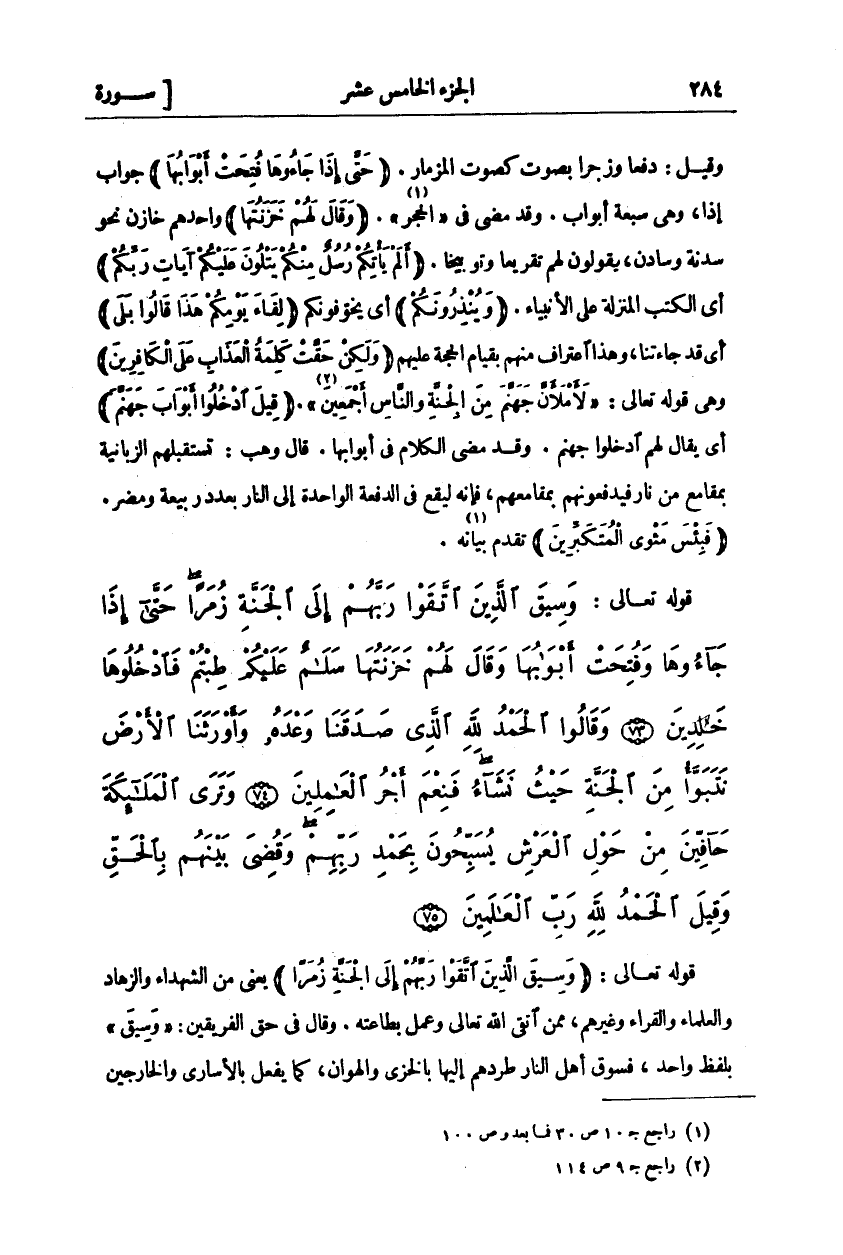 ٢٨٤ الجزء الخامس عشر [ سـورة
وقيـل : دفعا وزجرا بصوت كصوت المزمار . ﴿ حَتَّى إِذَا جَاءُوهَا فُتِحَتْ أَبْوَابُهَا ﴾ جواب
إذا، وهى سبعة أبواب . وقد مضى فى « الحجر »(١) . ﴿ وَقَالَ لَهُمْ خَزَنَتُهَا ﴾ واحدهم خازن نحو
سدنة وسادن، يقولون لهم تقريعا وتوبيخا . ﴿ أَلَمْ يَأْتِكُمْ رُسُلٌ مِنْكُمْ يَتْلُونَ عَلَيْكُمْ آيَاتِ رَبِّكُمْ ﴾
أى الكتب المنزلة على الأنبياء . ﴿ وَيُنْذِرُونَكُمْ ﴾ أى يخوّفونكم ﴿ لِقَاءَ يَوْمِكُمْ هَذَا قَالُوا بَلَى ﴾
أى قد جاءتنا، وهذا اعتراف منهم بقيام الحجة عليهم ﴿ وَلَكِنْ حَقَّتْ كَلِمَةُ الْعَذَابِ عَلَى الْكَافِرِينَ ﴾
وهى قوله تعالى : « لَأَمْلَأَنَّ جَهَنَّمَ مِنَ الْجِنَّةِ وَالنَّاسِ أَجْمَعِينَ »(٢) . ﴿ قِيلَ ٱدْخُلُوا أَبْوَابَ جَهَنَّمَ ﴾
أى يقال لهم ٱدخلوا جهنم . وقـد مضى الكلام فى أبوابها . قال وهب : تستقبلهم الزبانية
بمقامع من نار فيدفعونهم بمقامعهم، فإنه ليقع فى الدفعة الواحدة إلى النار بعدد ربيعة ومضر .
﴿ فَبِئْسَ مَثْوَى الْمُتَكَبِّرِينَ ﴾ تقدم بيانه(١) .
قوله تعـالى : وَسِيقَ ٱلَّذِينَ ٱتَّقَوْا رَبَّهُمْ إِلَى ٱلْجَنَّةِ زُمَرًا ۖ حَتَّىٰٓ إِذَا
جَآءُوهَا وَفُتِحَتْ أَبْوَٰبُهَا وَقَالَ لَهُمْ خَزَنَتُهَا سَلَـٰمٌ عَلَيْكُمْ طِبْتُمْ فَٱدْخُلُوهَا
خَـٰلِدِينَ ﴿٧٣﴾ وَقَالُوا ٱلْحَمْدُ لِلَّهِ ٱلَّذِى صَدَقَنَا وَعْدَهُۥ وَأَوْرَثَنَا ٱلْأَرْضَ
نَتَبَوَّأُ مِنَ ٱلْجَنَّةِ حَيْثُ نَشَآءُ ۖ فَنِعْمَ أَجْرُ ٱلْعَـٰمِلِينَ ﴿٧٤﴾ وَتَرَى ٱلْمَلَـٰٓئِكَةَ
حَآفِّينَ مِنْ حَوْلِ ٱلْعَرْشِ يُسَبِّحُونَ بِحَمْدِ رَبِّهِمْ ۖ وَقُضِىَ بَيْنَهُم بِٱلْحَقِّ
وَقِيلَ ٱلْحَمْدُ لِلَّهِ رَبِّ ٱلْعَـٰلَمِينَ ﴿٧٥﴾
قوله تعـالى : ﴿ وَسِيقَ الَّذِينَ ٱتَّقَوْا رَبَّهُمْ إِلَى الْجَنَّةِ زُمَرًا ﴾ يعنى من الشهداء والزهاد
والعلماء والقراء وغيرهم، ممن ٱتقى الله تعالى وعمل بطاعته . وقال فى حق الفريقين : « وَسِيقَ »
بلفظ واحد ، فسوق أهل النار طردهم إليها بالخزى والهوان، كما يفعل بالأسارى والخارجين
(١) راجع جـ ١٠ ص ٣٠ فـا بعد و ص ١٠٠
(٢) راجع جـ ٩ ص ١١٤